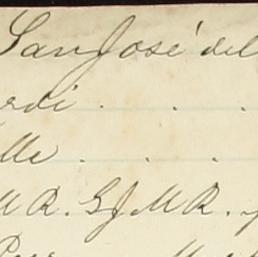 San José del
rdi . . .
lle . . .
M R. G J M R. y